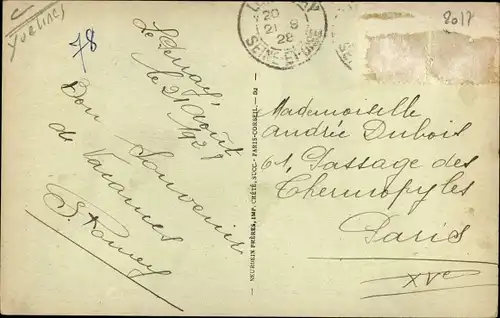 C
Yvelines
78
20
21 - 8
28
SEINE-ET-OISE
2017
le 21 août
1928
Bon Souvenir
de Vacances
NEURDEIN FRÈRES, IMP. CRÉTÉ, SUCC. - PARIS-CORBEIL
Mademoiselle
Andrée Dubois
61, Passage des
Thermopyles
Paris
XVe